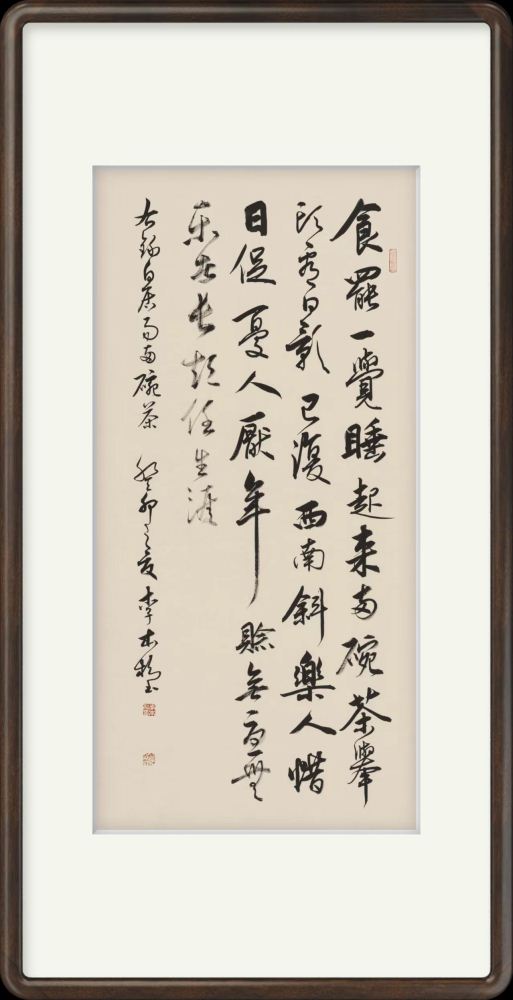 食罷一覺睡起来兩碗茶舉
頭看日影已復西南斜樂人惜
日促憂人厭年賒無憂無
樂者長短任生涯
右錄白居易兩碗茶 癸卯之夏 李木